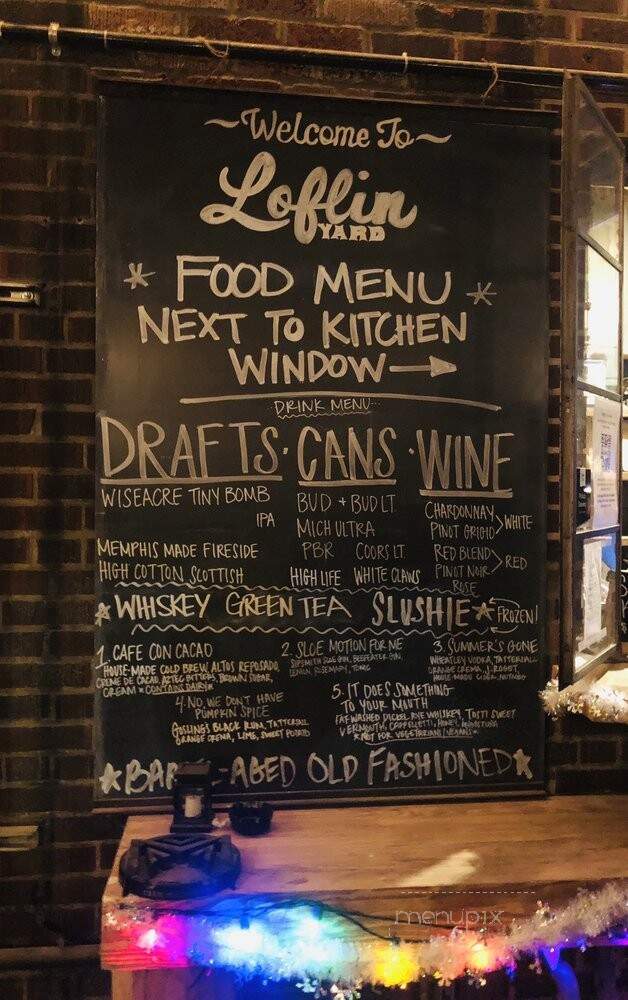 ~Welcome To~
Loflin
YARD
* FOOD MENU *
NEXT TO KITCHEN
WINDOW →
DRINK MENU...
DRAFTS · CANS · WINE
WISEACRE TINY BOMB
IPA
MEMPHIS MADE FIRESIDE
HIGH COTTON SCOTTISH
BUD + BUD LT
MICH ULTRA
PBR COORS LT
HIGH LIFE WHITE CLAWS
CHARDONNAY
PINOT GRIGIO > WHITE
RED BLEND
PINOT NOIR > RED
ROSE
★ WHISKEY GREEN TEA SLUSHIE ★ FROZEN!
1. CAFE CON CACAO
HOUSE-MADE COLD BREW, ALTOS REPOSADO,
CREME DE CACAO, AZTEC BITTERS, BROWN SUGAR,
CREAM * CONTAINS DAIRY *
2. SLOE MOTION FOR ME
SIPSMITH SLOE GIN, BEEFEATER GIN,
LEMON, ROSEMARY, TONIC
3. SUMMER'S GONE
WHEATLEY VODKA, TATTERSALL
ORANGE CREMA,
HOUSE-MADE CIDER, NUTMEG
4. NO, WE DON'T HAVE
PUMPKIN SPICE
GOSLINGS BLACK RUM, TATTERSALL
ORANGE CREMA, LIME, SWEET POTATO
5. IT DOES SOMETHING
TO YOUR MOUTH
FAT WASHED DICKEL RYE WHISKEY, TOSTI SWEET
VERMOUTH, CAPPELLETTI, HONEY, ANGOSTURA
* NOT FOR VEGETARIANS/VEGANS *
★ -AGED OLD FASHIONED ★
menupix